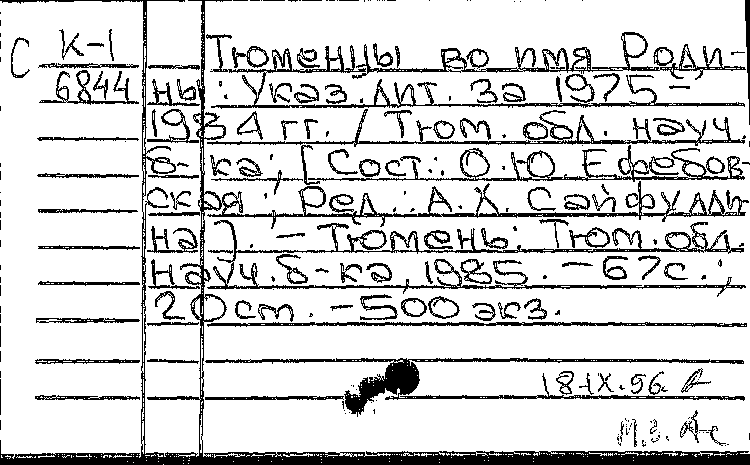 С К-1
6844
Тюменцы во имя Роди-
ны: Указ. лит. за 1975-
1984 гг. / Тюм. обл. науч.
б-ка; [Сост.: О.Ю. Ефебов-
ская; Ред.: А.Х. Сайфулли-
на]. - Тюмень: Тюм. обл.
науч. б-ка, 1985. - 67с.;
20 см. - 500 экз.
18-IX.96.